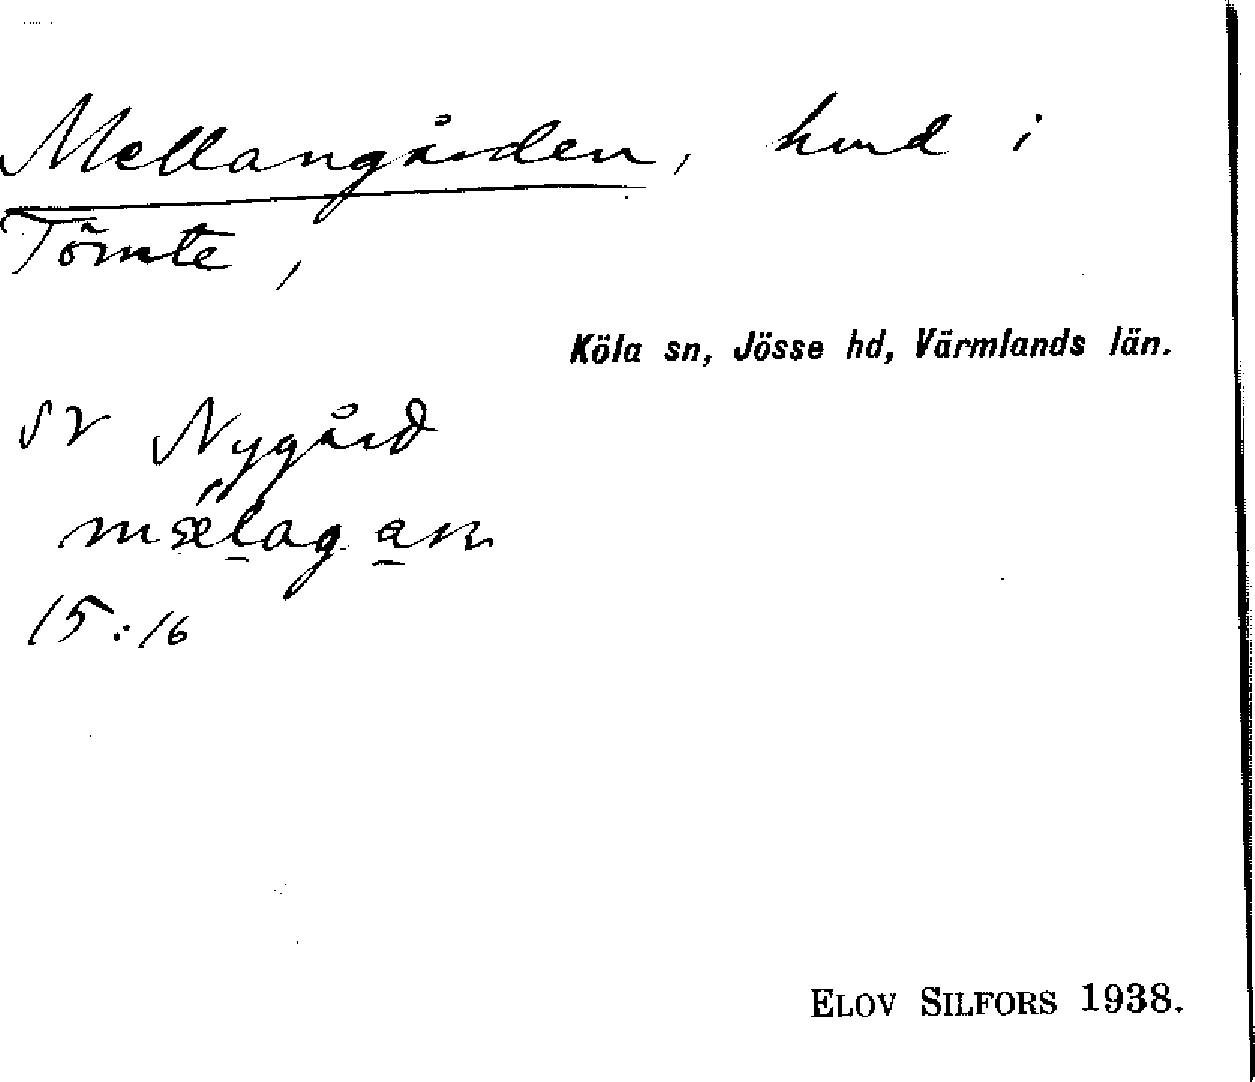 Mellangården, hmd i
Tömte,
Köla sn, Jösse hd, Värmlands län.
SV Nygård
15:16
ELOV SILFORS 1938.